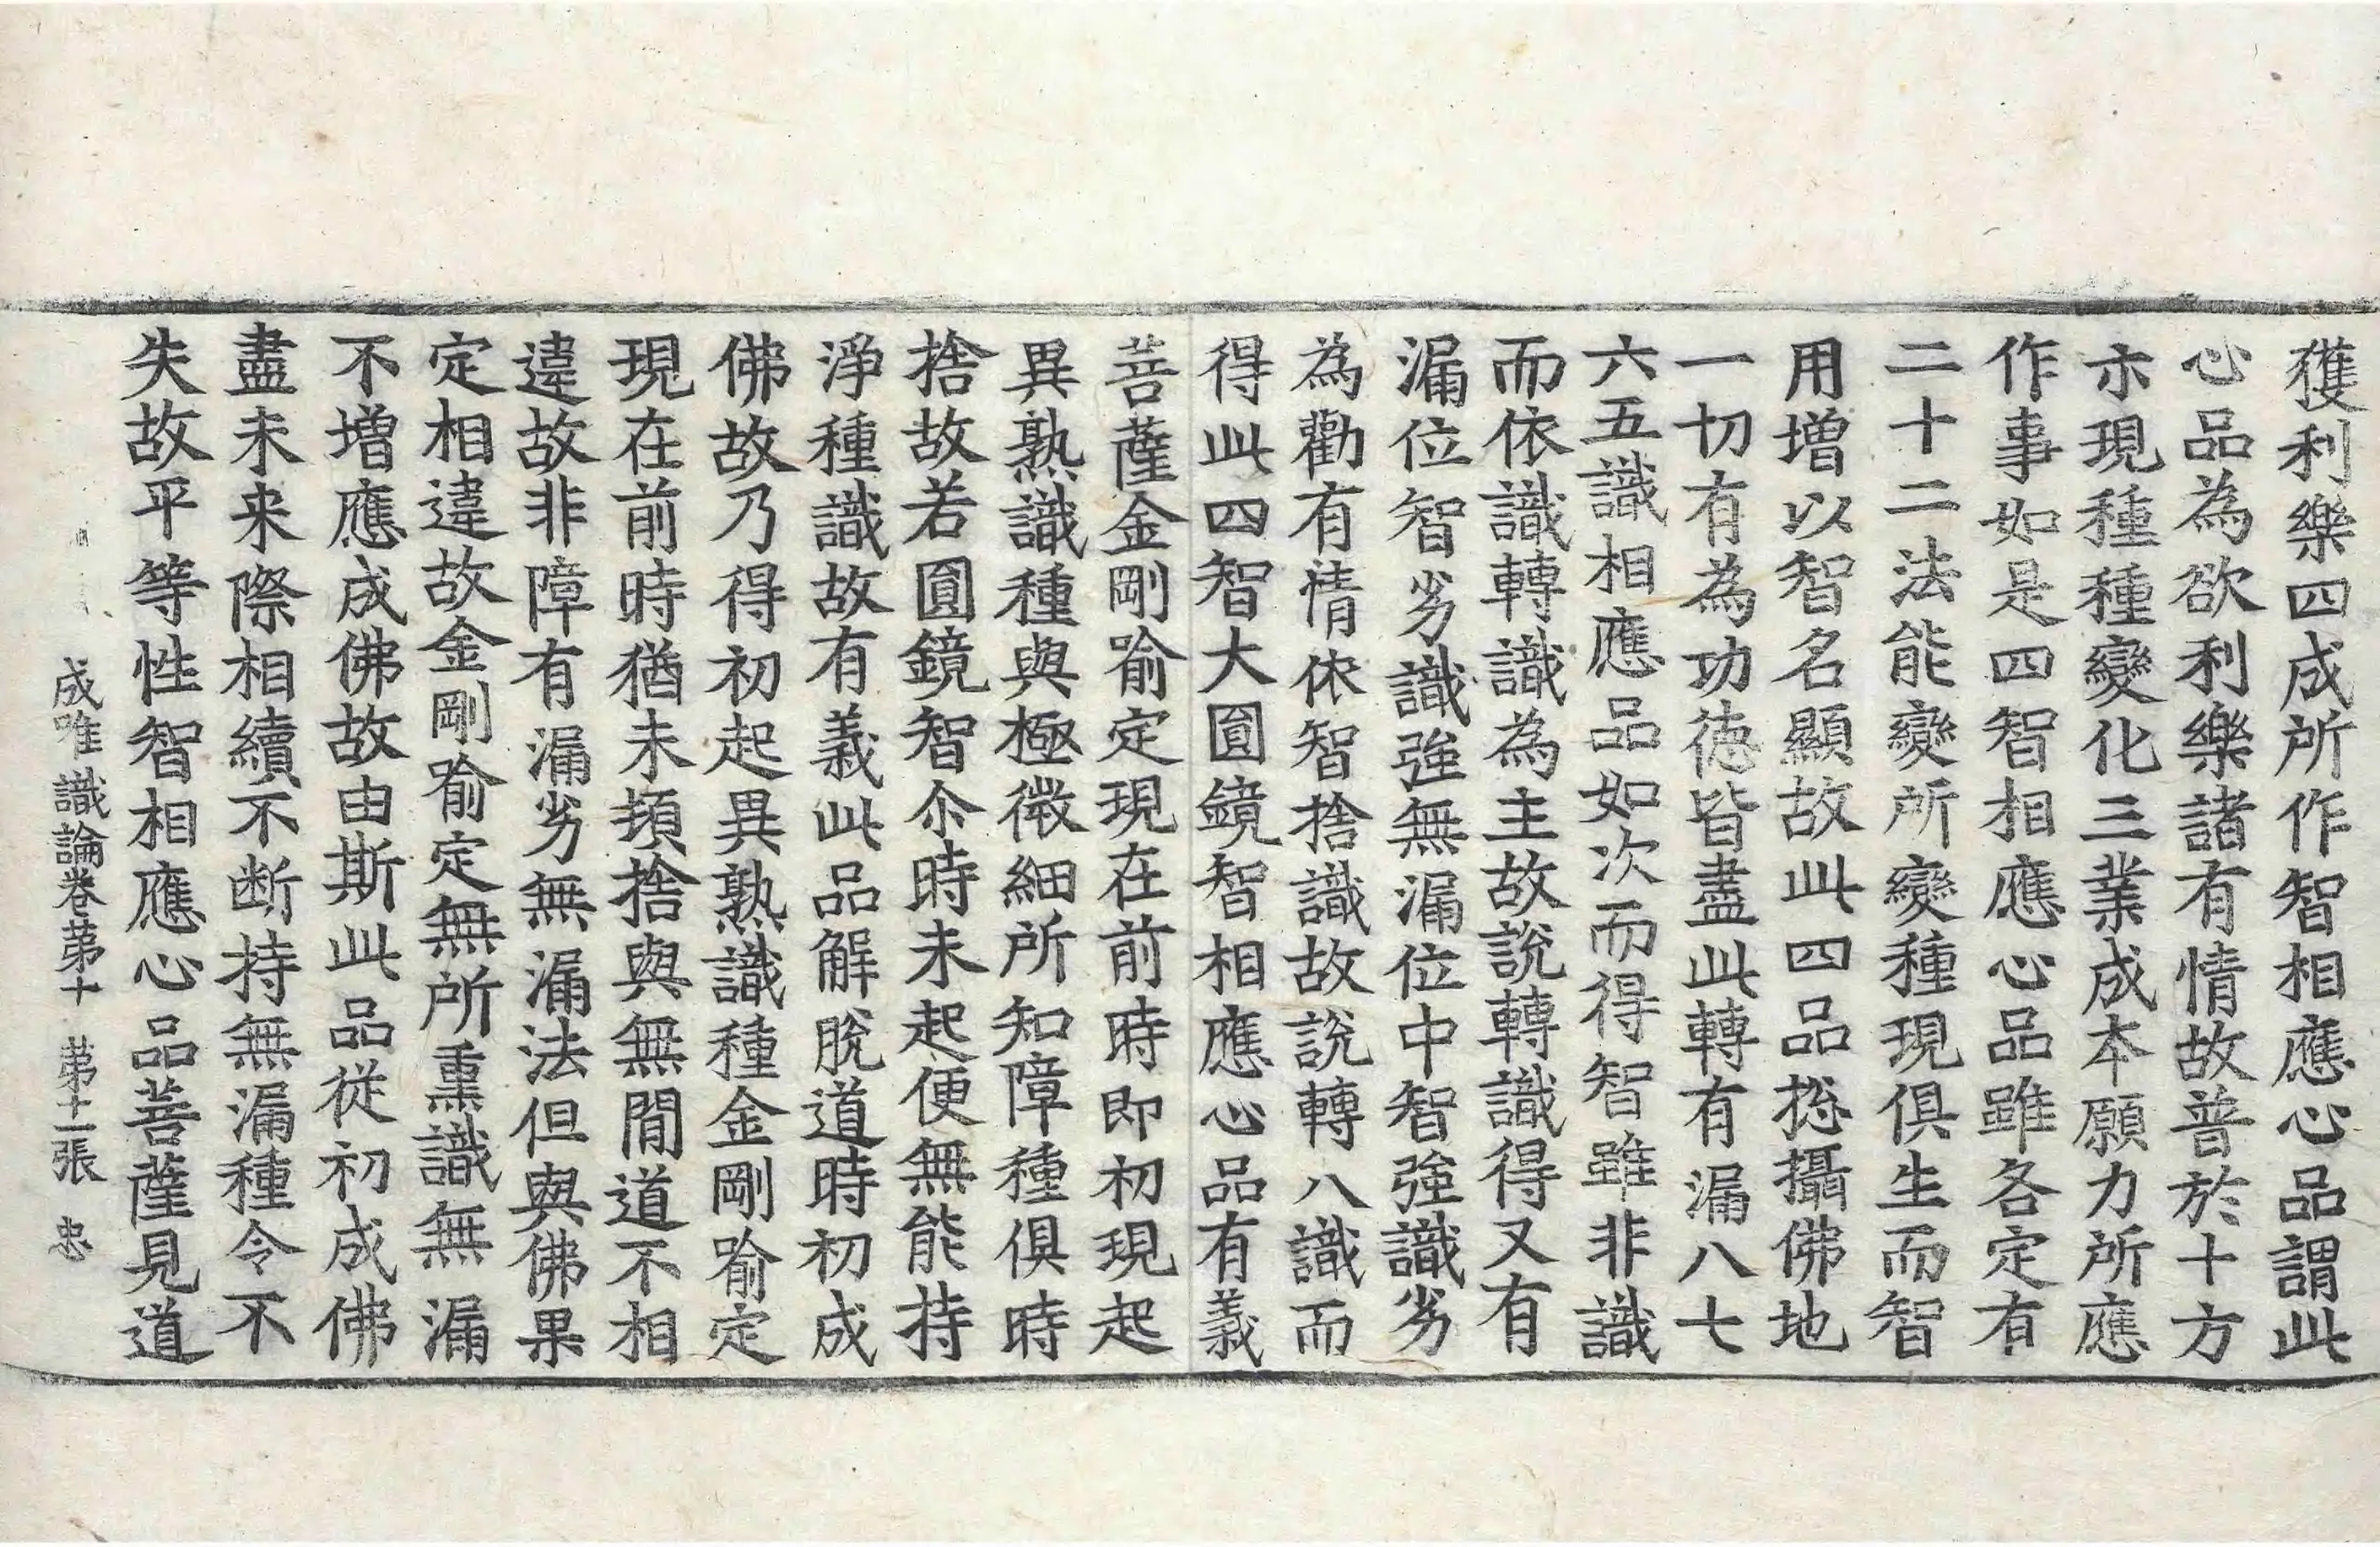 獲利樂四成所作智相應心品謂此
心品為欲利樂諸有情故普於十方
示現種種變化三業成本願力所應
作事如是四智相應心品雖各定有
二十二法能變所變種現俱生而智
用增以智名顯故此四品捴攝佛地
一切有為功徳皆盡此轉有漏八七
六五識相應品如次而得智雖非識
而依識轉識為主故說轉識得又有
漏位智劣識強無漏位中智強識劣
為勸有情依智捨識故說轉八識而
得此四智大圎鏡智相應心品有義
菩薩金剛喻定現在前時即初現起
異熟識種與極微細所知障種俱時
捨故若圎鏡智尒時未起便無能持
淨種識故有義此品解脫道時初成
佛故乃得初起異熟識種金剛喻定
現在前時猶未頓捨與無閒道不相
違故非障有漏劣無漏法但與佛果
定相違故金剛喻定無所熏識無漏
不增應成佛故由斯此品從初成佛
盡未来際相續不断持無漏種令不
失故平等性智相應心品菩薩見道
成唯識論卷苐十 苐十二張 忠